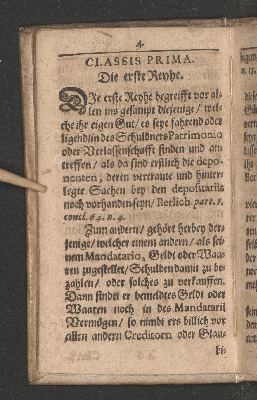 4
CLASSIS PRIMA.
Die erste Reyhe.
DIe erste Reyhe begreifft vor al-
len ins gesampt diejenige / wel-
che ihr eigen Gut / es seye fahrend oder
ligend in des Schuldners Patrimonio
oder Verlassenschafft finden und an-
treffen / als da sind erstlich die depo-
nenten, deren vertraute und hinter-
legte Sachen bey den depositariis
noch vorhanden seyn / Berlich. part. 1.
concl. 64. n. 4.
Zum andern / gehört herbey der-
jenige / welcher einem andern / als sei-
nem Mandatario, Geldt oder Waa-
ren zugestellet / Schulden damit zu be-
zahlen / oder solches zu verkauffen.
Dann findet er bemeldtes Geldt oder
Waaren noch in des Mandatarii
Vermögen / so nimbt ers billich vor
allen andern Creditorn oder Glau-
bi-